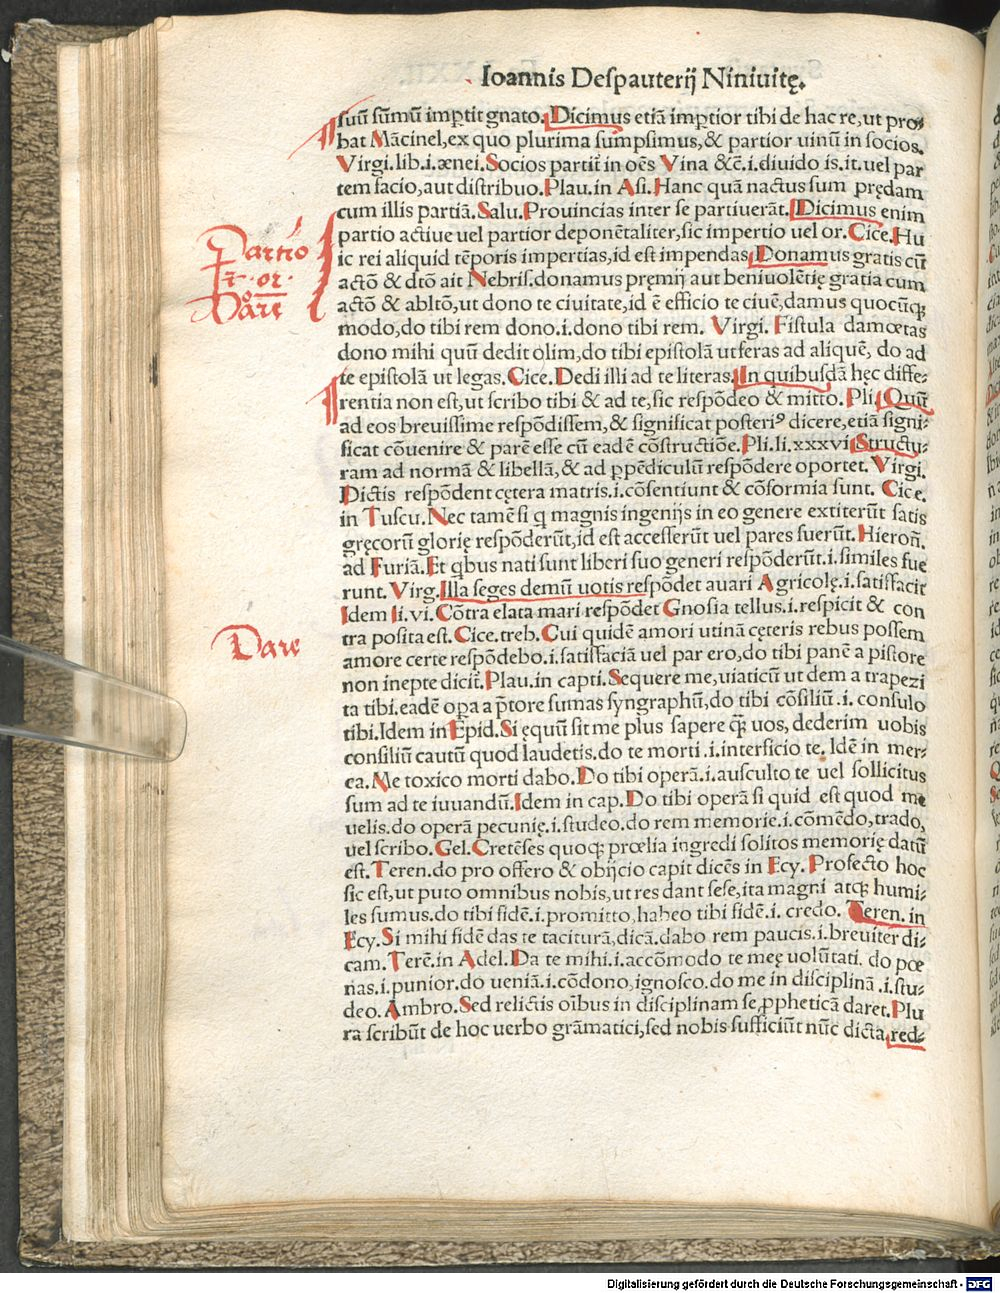 Ioannis Despauterij Niniuitę.
suũ sũmũ imptit gnato. Dicimus etiã imptior tibi de hac re, ut pro⸗
bat Mãcinel, ex quo plurima sumpsimus, & partior uinũ in socios.
Virgi. lib. i. ænei. Socios partit̃ in oẽs Vina &c̃. i. diuido is. it. uel par
tem facio, aut distribuo. Plau. in Asi. Hanc quã nactus sum prędam
cum illis partiã. Salu. Prouincias inter se partiuerãt. Dicimus enim
partio actiue uel partior deponẽtaliter, sic impertio uel or. Cice. Hu
ic rei aliquid tẽporis impertias, id est impendas. Donamus gratis cũ
actõ & dtõ ait Nebris. donamus pręmij aut beniuolẽtię gratia cum
actõ & abltõ, ut dono te ciuitate, id ẽ efficio te ciuẽ, damus quocũqꝫ
modo, do tibi rem dono. i. dono tibi rem. Virgi. Fistula damœtas
dono mihi quũ dedit olim, do tibi epistolã ut feras ad aliquẽ, do ad
te epistolã ut legas. Cice. Dedi illi ad te literas. In quibusdã hęc diffe⸗
rentia non est, ut scribo tibi & ad te, sic respõdeo & mitto. Pli. Quũ
ad eos breuissime respõdissem, & significat posteriꝰ dicere, etiã signi⸗
ficat cõuenire & parẽ esse cũ eadẽ cõstructiõe. Pli. li. xxxvi Structu⸗
ram ad normã & libellã, & ad ꝑpẽdiculũ respõdere oportet. Virgi.
Dictis respõdent cętera matris. i. cõsentiunt & cõformia sunt. Cice.
in Tuscu. Nec tamẽ si q magnis ingenijs in eo genere extiterũt satis
gręcorũ glorię respõderũt, id est accesserũt uel pares fuerũt. Hieroñ.
ad Furiã. Et qbus nati sunt liberi suo generi respõderũt. i. similes fue
runt. Virg. Illa seges demũ uotis respõdet auari Agricolę. i. satisfacit
Idem li. vi. Cõtra elata mari respõdet Gnosia tellus. i. respicit & con
tra posita est. Cice. treb. Cui quidẽ amori utinã cęteris rebus possem
amore certe respõdebo. i. satisfaciã uel par ero, do tibi panẽ a pistore
non inepte dicit̃. Plau. in capti. Sequere me, uiaticũ ut dem a trapezi
ta tibi. eadẽ opa a p̃tore sumas syngraphũ, do tibi cõsiliũ. i. consulo
tibi. Idem in Epid. Si ęquũ sit me plus sapere q̃ꝫ uos, dederim uobis
consiliũ cautũ quod laudetis. do te morti . i. interficio te. Idẽ in mer⸗
ca. Me toxico morti dabo. Do tibi operã. i. ausculto te uel sollicitus
sum ad te iuuandũ. Idem in cap. Do tibi operã si quid est quod me
uelis. do operã pecunię. i. studeo. do rem memorie. i. cõmẽdo, trado,
uel scribo. Gel. Cretẽses quoqꝫ prœlia ingredi solitos memorię datũ
est. Teren. do pro offero & obijcio capit dicẽs in Ecy. Profecto hoc
sic est, ut puto omnibus nobis, ut res dant sese, ita magni atqꝫ humi⸗
les sumus. do tibi fidẽ. i. promitto, habeo tibi fidẽ. i. credo. Teren. in
Ecy. Si mihi fidẽ das te taciturã, dicã. dabo rem paucis. i. breuiter di⸗
cam. Terẽ. in Adel. Da te mihi. i. accõmodo te meę uolũtati. do pœ
nas. i. punior. do ueniã. i. cõdono, ignosco. do me in disciplinã . i. stu⸗
deo. Ambro. Sed relictis oĩbus in disciplinam se, ꝓpheticã daret. Plu
ra scribũt de hoc uerbo grãmatici, sed nobis sufficiũt nũc dicta, red⸗
Partio
Dare
Dare
Digitalisierung gefördert durch die Deutsche Forschungsgemeinschaft - DFG